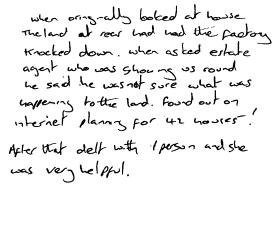 when oringrally looked at house
The land at rear had had the factory
knocked down. when asked estate
agent who was showing us round
he said he was not sure what was
happening to the land. found out on
internet planning for 42 houses!
After that delt with 1 person and she
was very helpful.